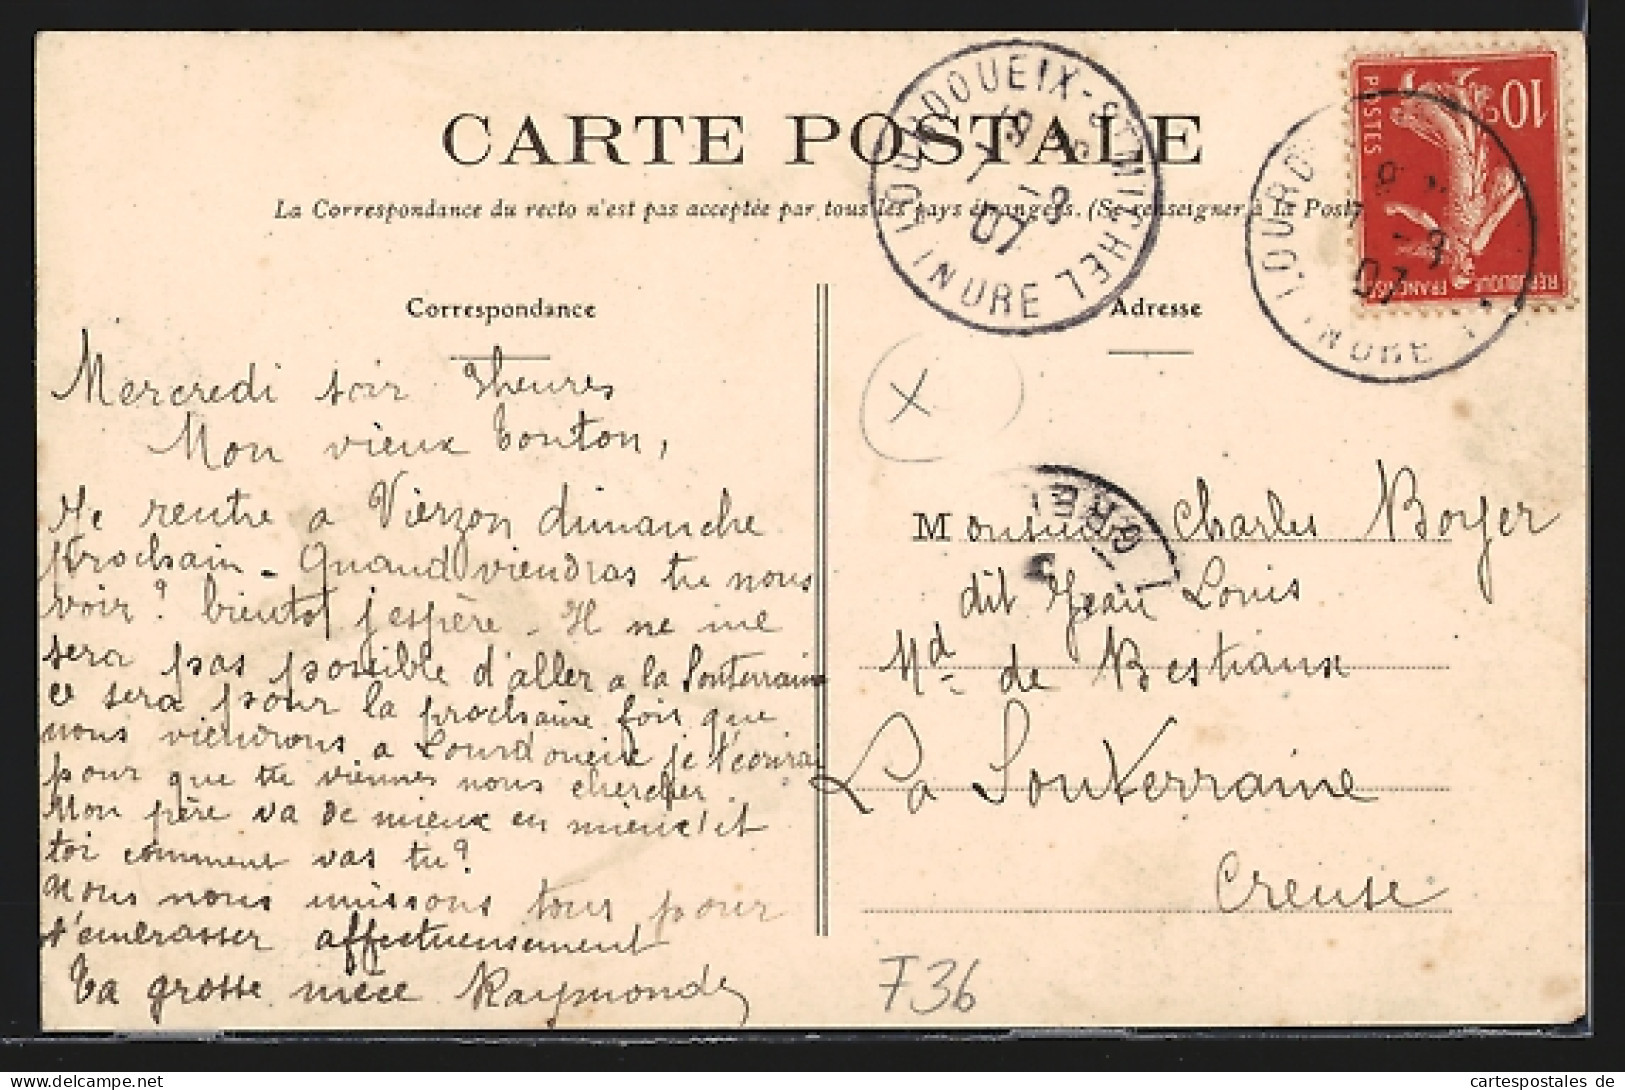 CARTE POSTALE
La Correspondance du recto n'est pas acceptée par tous les pays étrangers. (Se renseigner à la Post
Correspondance
Mercredi soir 3heures
Mon vieux Tonton,
Je rentre a Vierzon dimanche
prochain - Quand viendras tu nous
voir? bientot j'espère - Il ne me
sera pas possible d'aller a la Souterraine
ce sera pour la prochaine fois que
nous viendrons a Lourdoueix je t'écrirai
pour que tu viennes nous chercher
Mon père va de mieux en mieux et
toi comment vas tu?
Nous nous unissons tous pour
t'embrasser affectueusement
Ta grosse nièce Raymonde
Adresse
Monsieur Charles Boyer
dit Jean Louis
Md de Bestiaux
La Souterraine
Creuse
X
F36
LOURDOUEIX-ST MICHEL
INDRE
7 - 8
07
LOURD
INDRE
7 - 8
07
10c
POSTES
REPUBLIQUE FRANÇAISE
CRE
cartespostales de